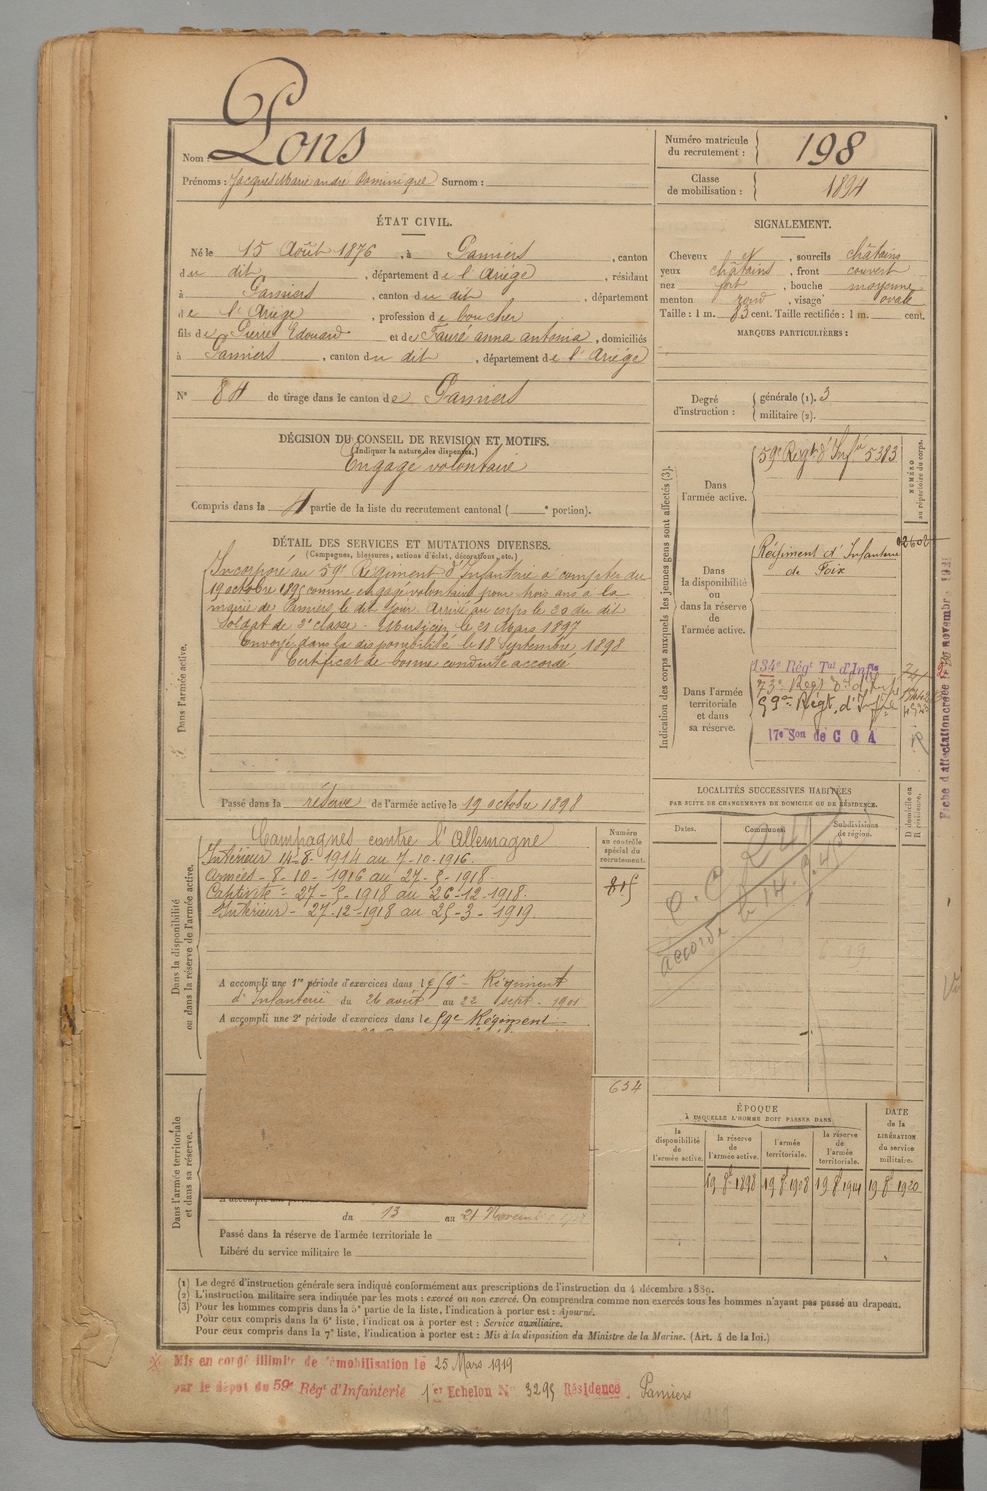 Nom : Pons
Prénoms : Jacques Marie andré Dominique Surnom :
Numéro matricule du recrutement : 198
Classe de mobilisation : 1894
ÉTAT CIVIL.
Né le 15 Août 1876, à Pamiers, canton
du dit, département de l'Ariège, résidant
à Pamiers, canton du dit, département
de l'Ariège, profession de boucher
fils de Pierre Edouard et de Fauré anna antonia, domiciliés
à Pamiers, canton du dit, département de l'Ariège
N° 84 de tirage dans le canton de Pamiers
SIGNALEMENT.
Cheveux N, sourcils châtains
yeux châtains, front couvert
nez fort, bouche moyenne
menton rond, visage ovale
Taille : 1 m. 83 cent. Taille rectifiée : 1 m. cent.
MARQUES PARTICULIÈRES :
Degré d'instruction : générale (1). 3
militaire (2).
DÉCISION DU CONSEIL DE REVISION ET MOTIFS.
(Indiquer la nature des dispenses.)
Engagé volontaire
Compris dans la 4 partie de la liste du recrutement cantonal ( e portion).
DÉTAIL DES SERVICES ET MUTATIONS DIVERSES.
(Campagnes, blessures, actions d'éclat, décorations, etc.)
Dans l'armée active.
Incorporé au 59e Régiment d'Infanterie à compter du
19 octobre 1895 comme engagé volontaire pour trois ans à la
mairie de Pamiers le dit jour. Arrivé au corps le 20 du dit
Soldat de 2e classe. Musicien le 21 Mars 1897
Envoyé dans la disponibilité le 18 Septembre 1898
Certificat de bonne conduite accordé
Passé dans la réserve de l'armée active le 19 octobre 1898
Indication des corps auxquels les jeunes gens sont affectés (3).
NUMÉRO au répertoire du corps.
Dans l'armée active.
59e Régt d'Infie 5383
Dans la disponibilité ou dans la réserve de l'armée active.
Régiment d'Infanterie
de Foix
Dans l'armée territoriale et dans sa réserve.
134e Régt Tal d'Infie
59e Régt. d'Infie
17e Son de C O A
Fiche d'affectation créée le novembre
LOCALITÉS SUCCESSIVES HABITÉES
PAR SUITE DE CHANGEMENTS DE DOMICILE OU DE RÉSIDENCE.
Dates.
Communes.
Subdivisions de région.
D domicile ou R résidence.
C.C
accordé le 14.
Dans la disponibilité ou dans la réserve de l'armée active.
Numéro au contrôle spécial du recrutement.
815
Campagnes contre l'Allemagne
Intérieur 14-8-1914 au 7-10-1916.
Armées - 8-10-1916 au 27-5-1918.
Captivité - 27-5-1918 au 26-12-1918.
Intérieur - 27-12-1918 au 25-3-1919.
A accompli une 1re période d'exercices dans le 59e Régiment
d'Infanterie du 26 août au 22 sept. 1901
A accompli une 2e période d'exercices dans le 59e Régiment
634
Dans l'armée territoriale et dans sa réserve.
du 13 au 21 Novembre
Passé dans la réserve de l'armée territoriale le
Libéré du service militaire le
ÉPOQUE
A LAQUELLE L'HOMME DOIT PASSER DANS
la disponibilité de l'armée active.
la réserve de l'armée active.
l'armée territoriale.
la réserve de l'armée territoriale.
DATE de la LIBÉRATION du service militaire.
19 8bre 1898
19 8bre 1908
19 8bre 1914
19 8bre 1920
(1) Le degré d'instruction générale sera indiqué conformément aux prescriptions de l'instruction du 4 décembre 1889.
(2) L'instruction militaire sera indiquée par les mots : exercé ou non exercé. On comprendra comme non exercés tous les hommes n'ayant pas passé au drapeau.
(3) Pour les hommes compris dans la 5e partie de la liste, l'indication à porter est : Ajourné.
Pour ceux compris dans la 6e liste, l'indication à porter est : Service auxiliaire.
Pour ceux compris dans la 7e liste, l'indication à porter est : Mis à la disposition du Ministre de la Marine. (Art. 4 de la loi.)
Mis en congé illimité de démobilisation le 25 Mars 1919
par le dépôt du 59e Régt d'Infanterie 1er Echelon N° 3295 Résidence Pamiers